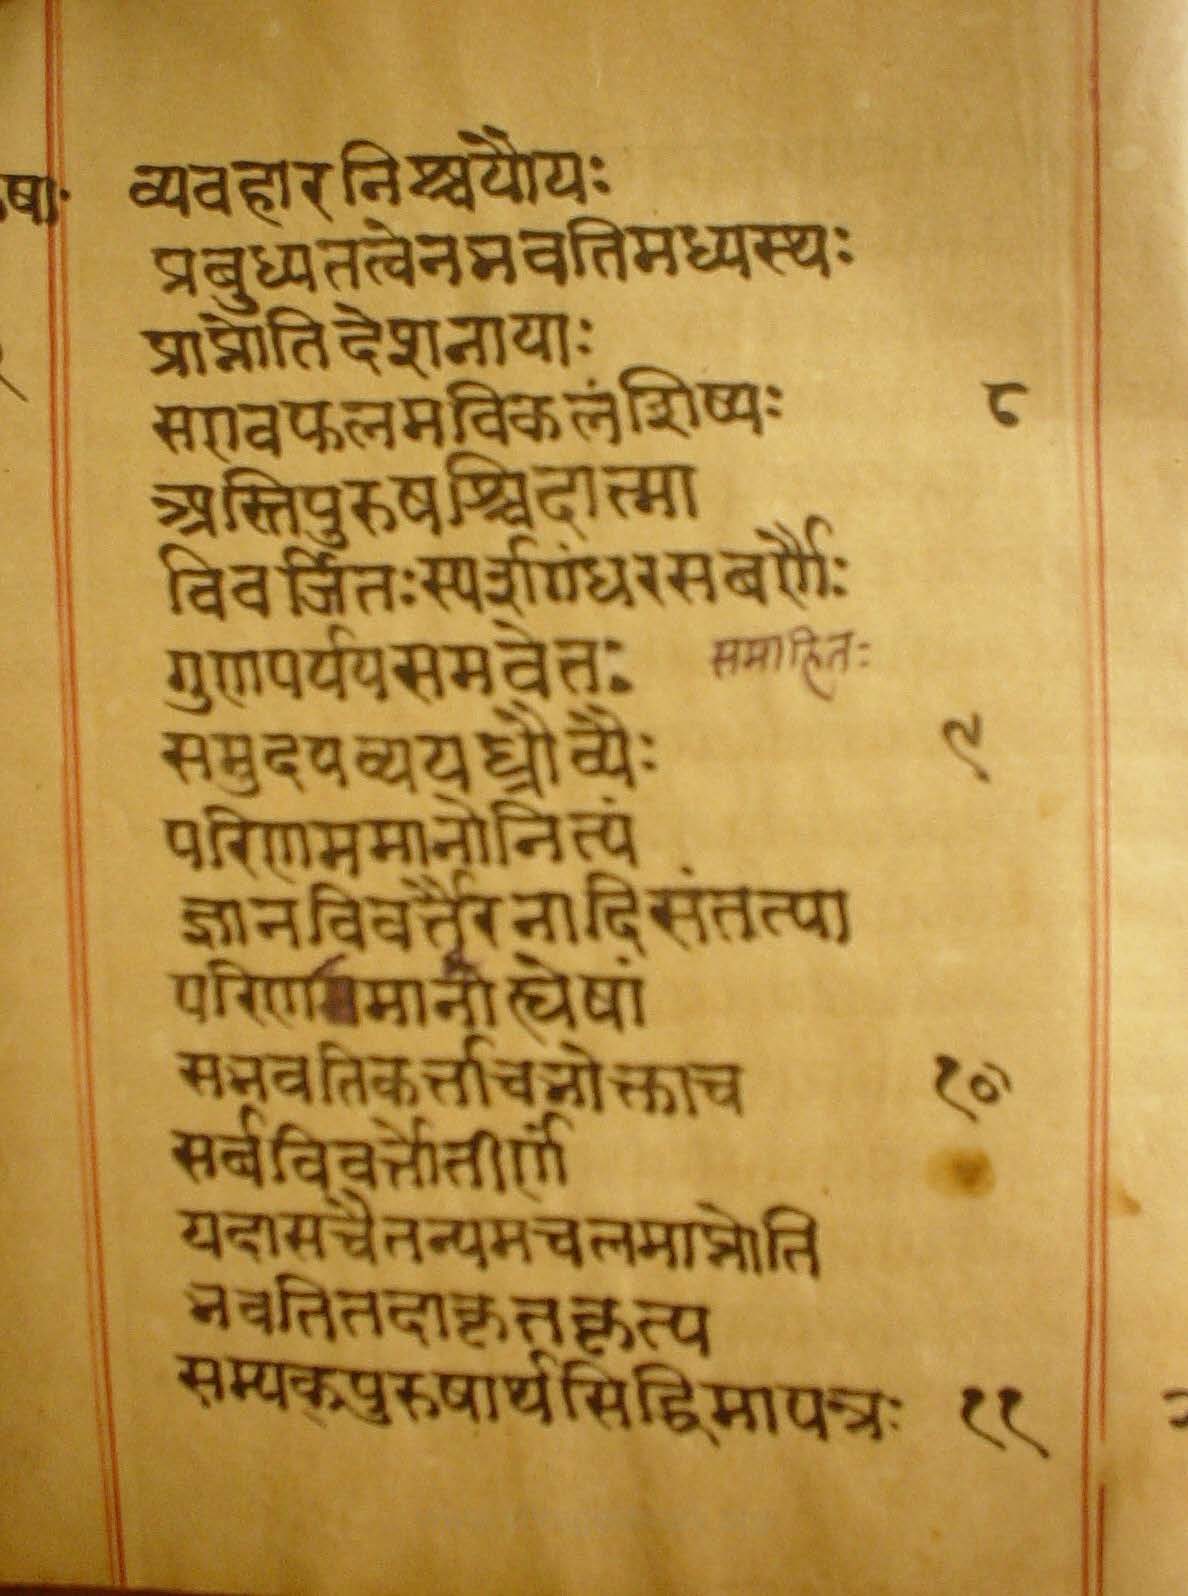 व्यवहारनिश्चयौयः
प्रबुध्यतत्वेनभवतिमध्यस्थः
प्राप्नोतिदेशनायाः
सएवफलमविकलंशिष्यः ८
अस्तिपुरुषश्चिदात्मा
विवर्जितःस्पर्शगंधरसवर्णैः
गुणपर्ययसमवेतः समाहितः
समुदयव्ययध्रौव्यैः ९
परिणममानोनित्यं
ज्ञानविवर्त्तैरनादिसंतत्या
परिणाममानोत्येषां
सभवतिकर्त्ताचभोक्ताच १०
सर्वविवर्त्तोतीर्णं
यदासचैतन्यमचलमाप्नोति
भवतितदाकृतकृत्य
सम्यक्पुरुषार्थसिद्धिमापन्नः ११